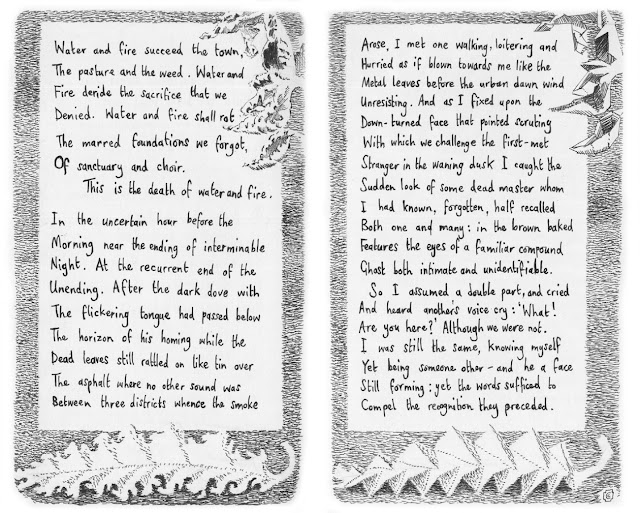 Water and fire succeed the town,
The pasture and the weed. Water and
Fire deride the sacrifice that we
Denied. Water and fire shall rot
The marred foundations we forgot,
Of sanctuary and choir.
This is the death of water and fire.
In the uncertain hour before the
Morning near the ending of interminable
Night. At the recurrent end of the
Unending. After the dark dove with
The flickering tongue had passed below
The horizon of his homing while the
Dead leaves still rattled on like tin over
The asphalt where no other sound was
Between three districts whence the smoke
Arose, I met one walking, loitering and
Hurried as if blown towards me like the
Metal leaves before the urban dawn wind
Unresisting. And as I fixed upon the
Down-turned face that pointed scrutiny
With which we challenge the first-met
Stranger in the waning dusk I caught the
Sudden look of some dead master whom
I had known, forgotten, half recalled
Both one and many: in the brown baked
Features the eyes of a familiar compound
Ghost both intimate and unidentifiable.
So I assumed a double part, and cried
And heard another's voice cry: 'What!
Are you here?' Although we were not.
I was still the same, knowing myself
Yet being someone other - and he a face
Still forming: yet the words sufficed to
Compel the recognition they preceded.